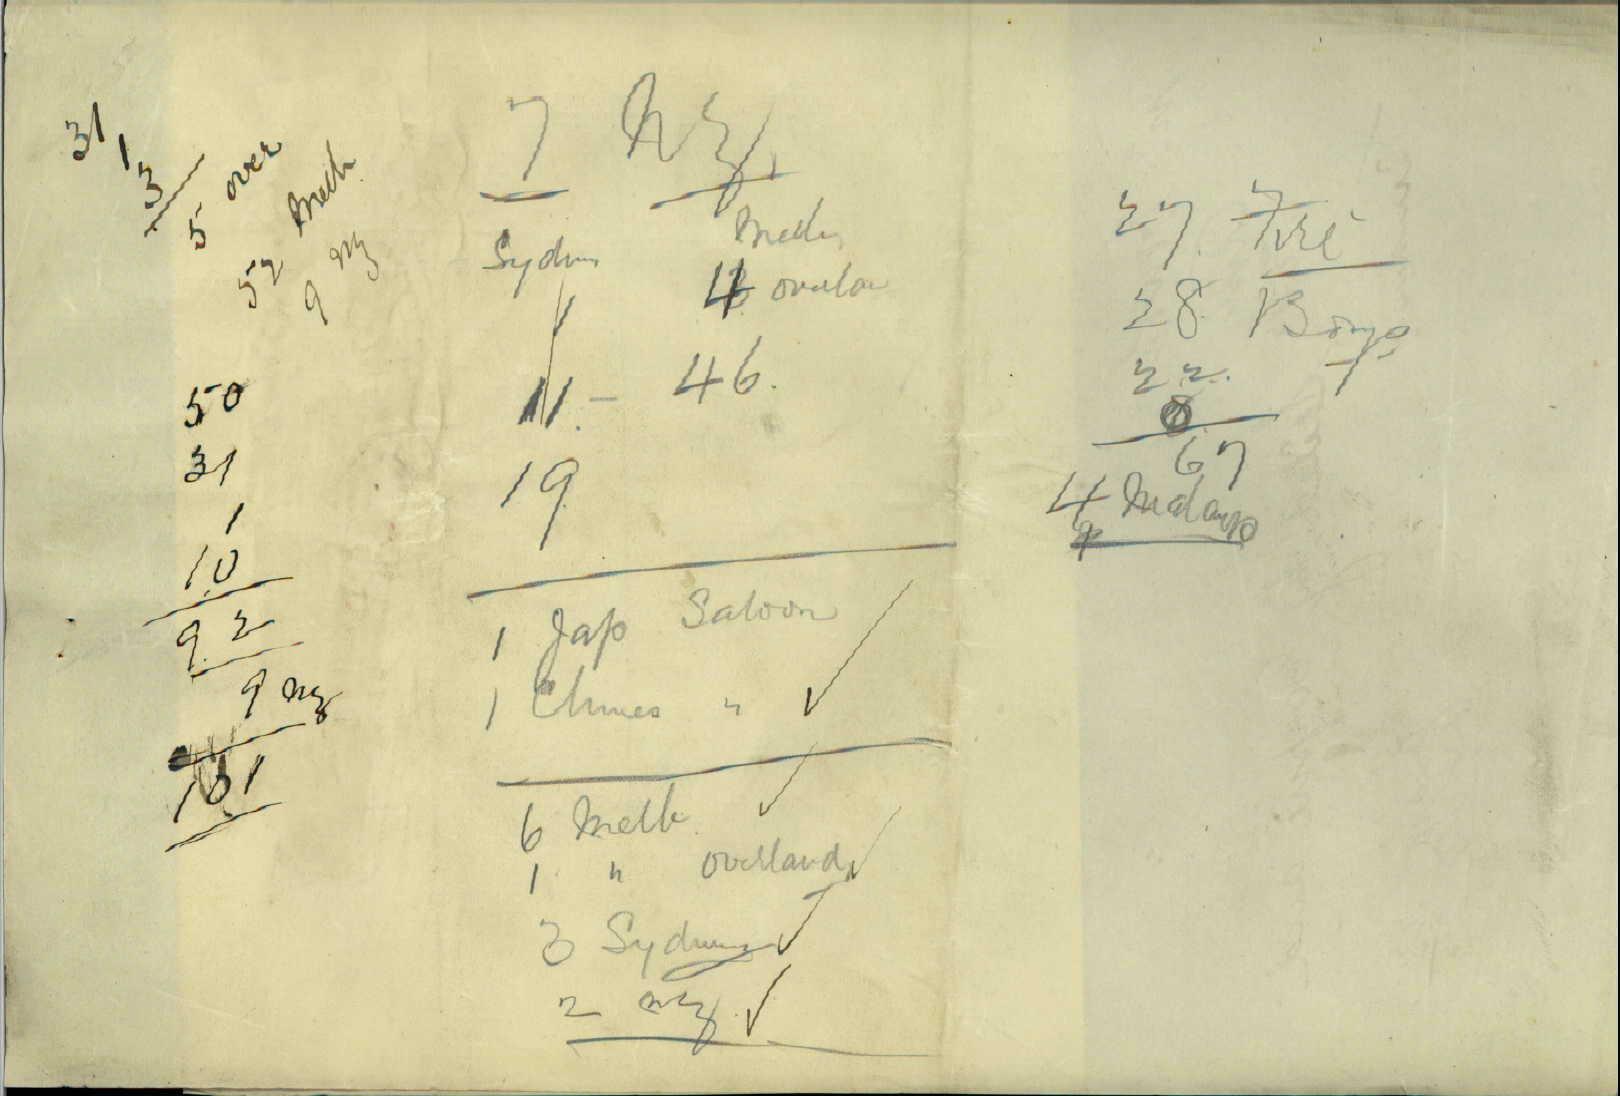 31
1
3
5 over
52 Melb
9 NZ
50
31
1
10
92
9 NZ
101
7 NZ
Sydney Melb
4 overlan
11 - 46.
19
1 Jap Saloon
1 Chines "
6 Melb.
1 " overland
3 Sydney
2 NZ
27. Fre
28 Bomy
22.
8
67
4